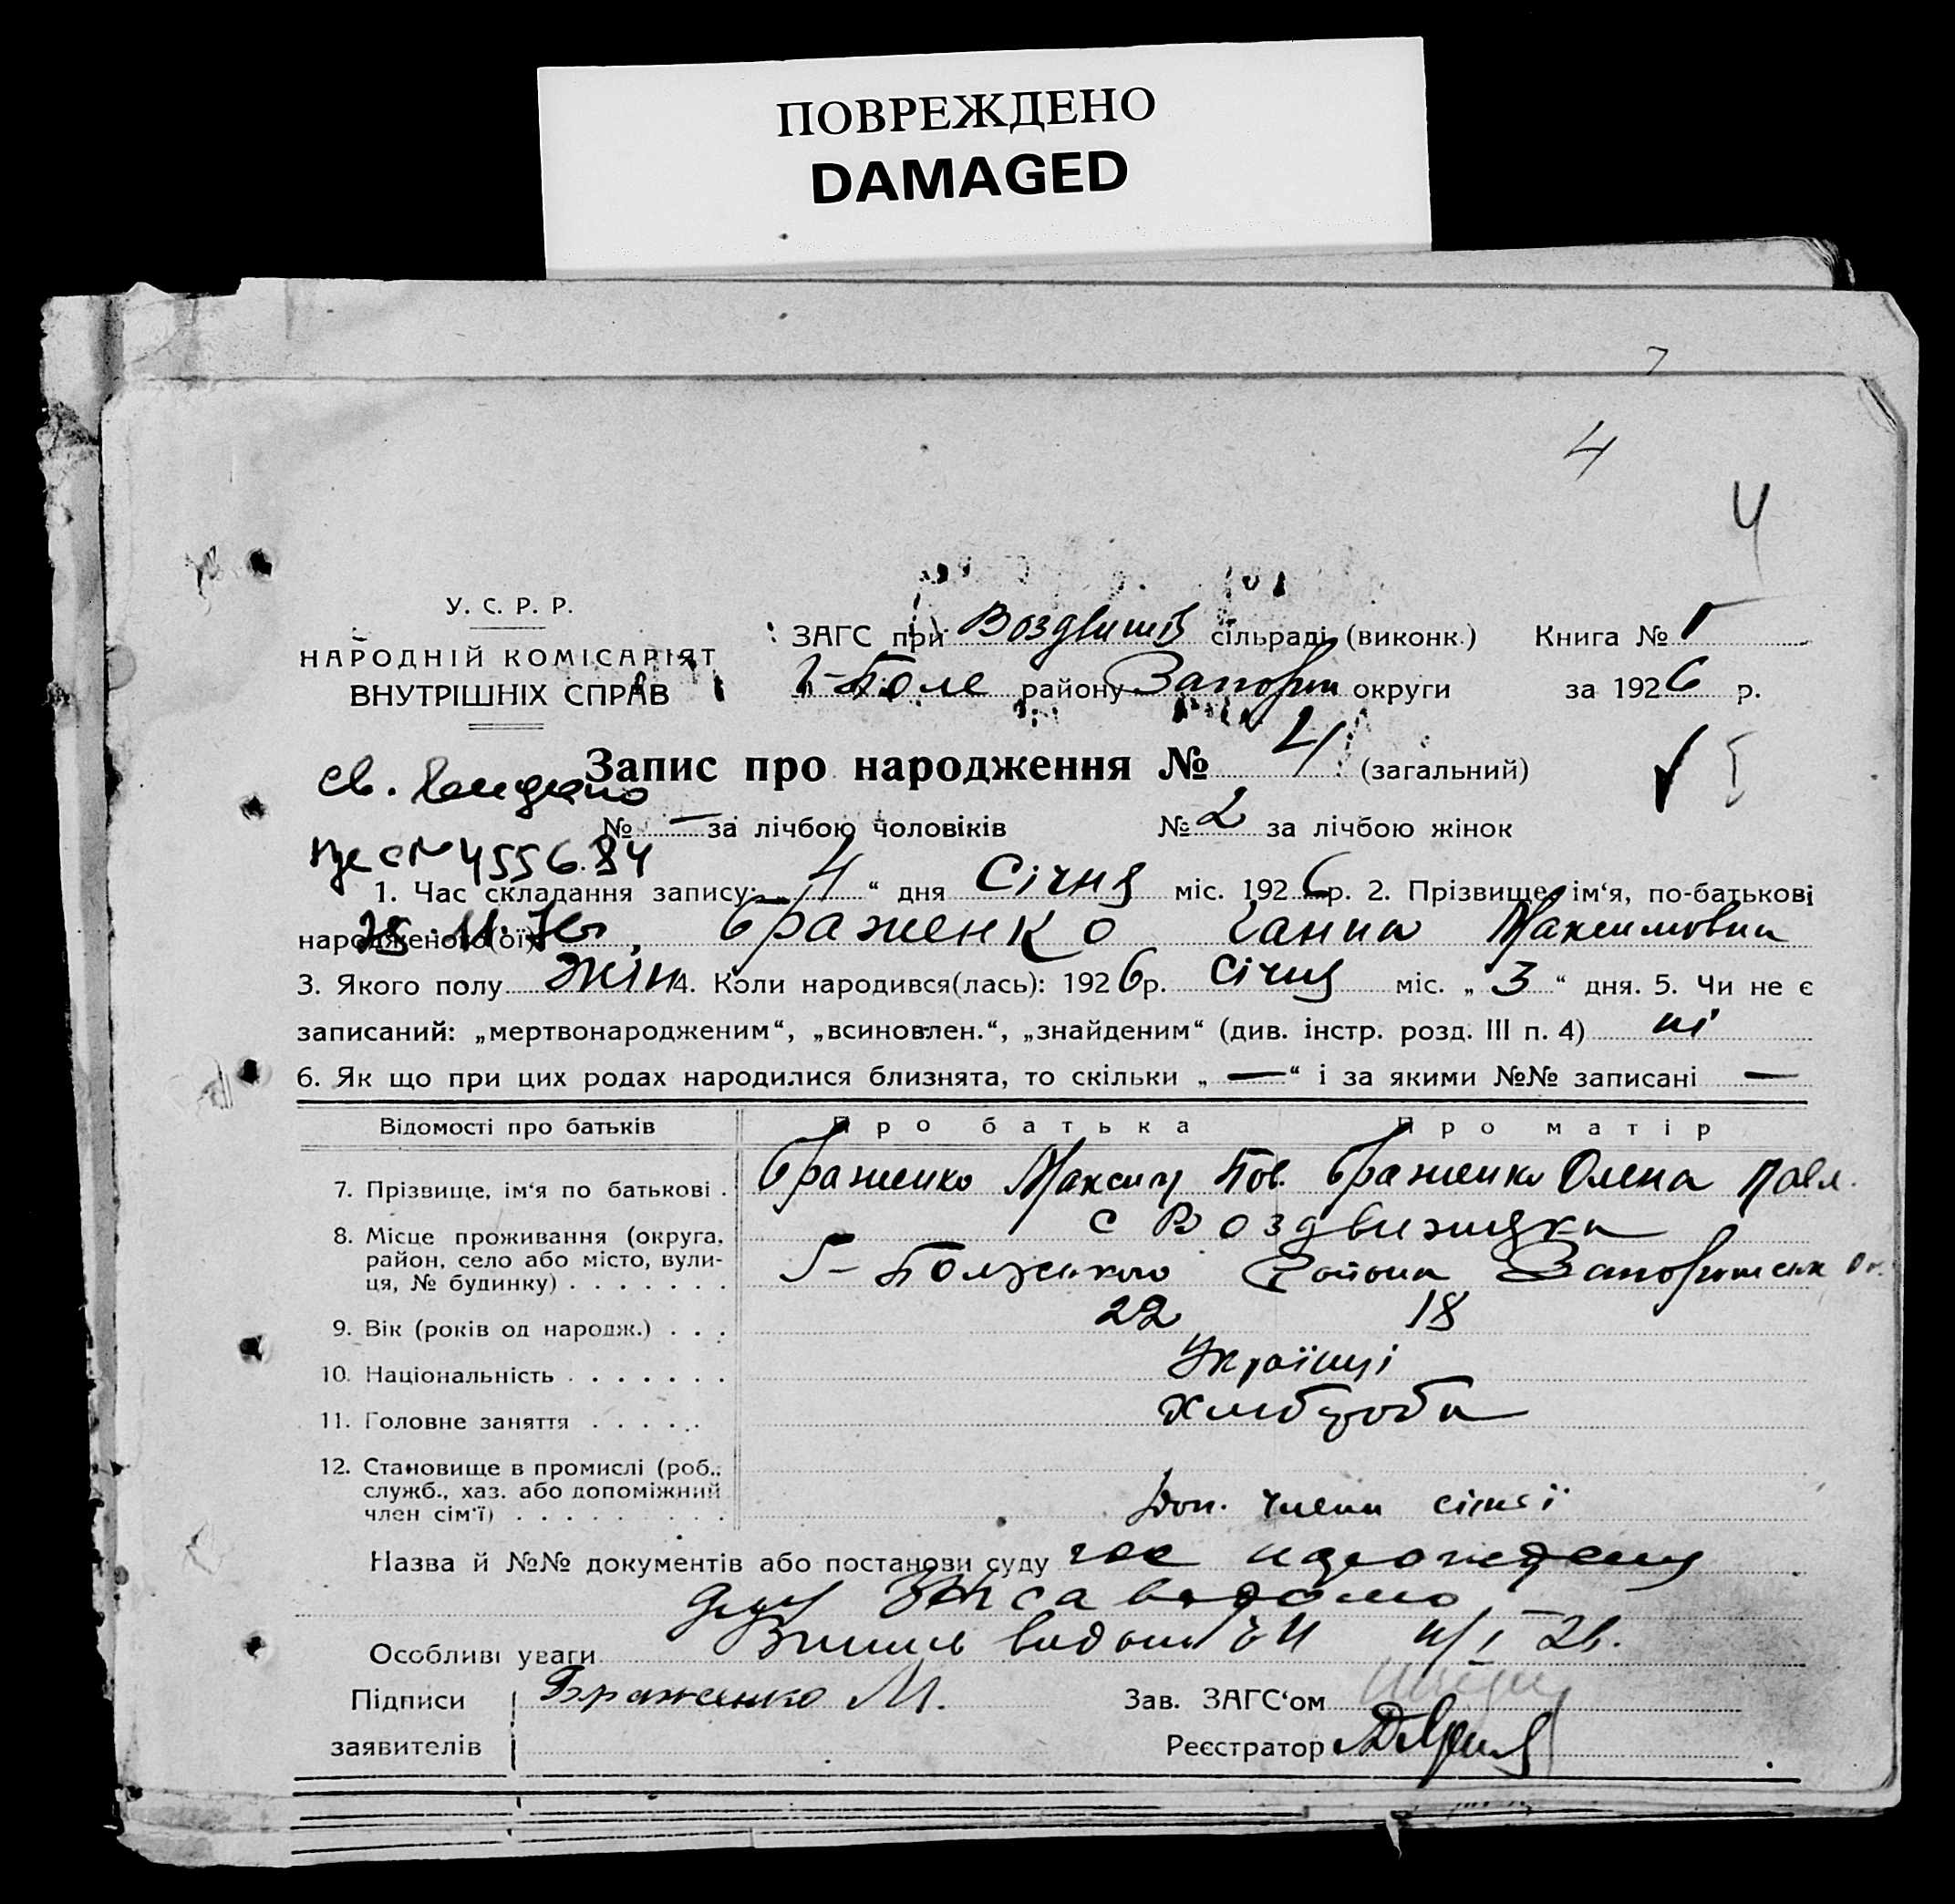 ПОВРЕЖДЕНО
DAMAGED
7
4
4
У. С. Р. Р.
НАРОДНІЙ КОМІСАРІЯТ
ВНУТРІШНІХ СПРАВ
ЗАГС при Воздвиш сільраді (виконк.) Книга №
Г-Поле району Запоріж округи за 1926 р.
Запис про народження № 4 (загальний)
св.
№ — за лічбою чоловіків № 2 за лічбою жінок
№ 455684
1. Час складання запису: „4“ дня Січня міс. 1926 р. 2. Прізвище, ім‘я, по-батькові
народженого(ої) Браженко Ганна Максимовна
3. Якого полу жін 4. Коли народився(лась): 1926 р. Січня міс. „3“ дня. 5. Чи не є
записаний: „мертвонародженим“, „всиновлен.“, „знайденим“ (див. інстр. розд. III п. 4) ні
6. Як що при цих родах народилися близнята, то скільки „—“ і за якими №№ записані —
Відомості про батьків Про батька Про матір
7. Прізвище, ім‘я по батькові . Браженко Максим Браженко Олена Павл.
8. Місце проживання (округа, с Воздвижувка
район, село або місто, вули-
ця, № будинку) . . . . . . . Г-Польського Района Запорожськ Ок.
9. Вік (років од народж.) . . . 22 18
10. Національність . . . . . . . Українці
11. Головне заняття . . . . . Хлібороби
12. Становище в промислі (роб.,
служб., хаз. або допоміжний
член сім‘ї) . . . . . . . . . Доп. члени сімьї
Назва й №№ документів або постанови суду
Особливі уваги Випись видана 4/I 26.
Підписи Браженко М. Зав. ЗАГС‘ом
заявителів Реєстратор